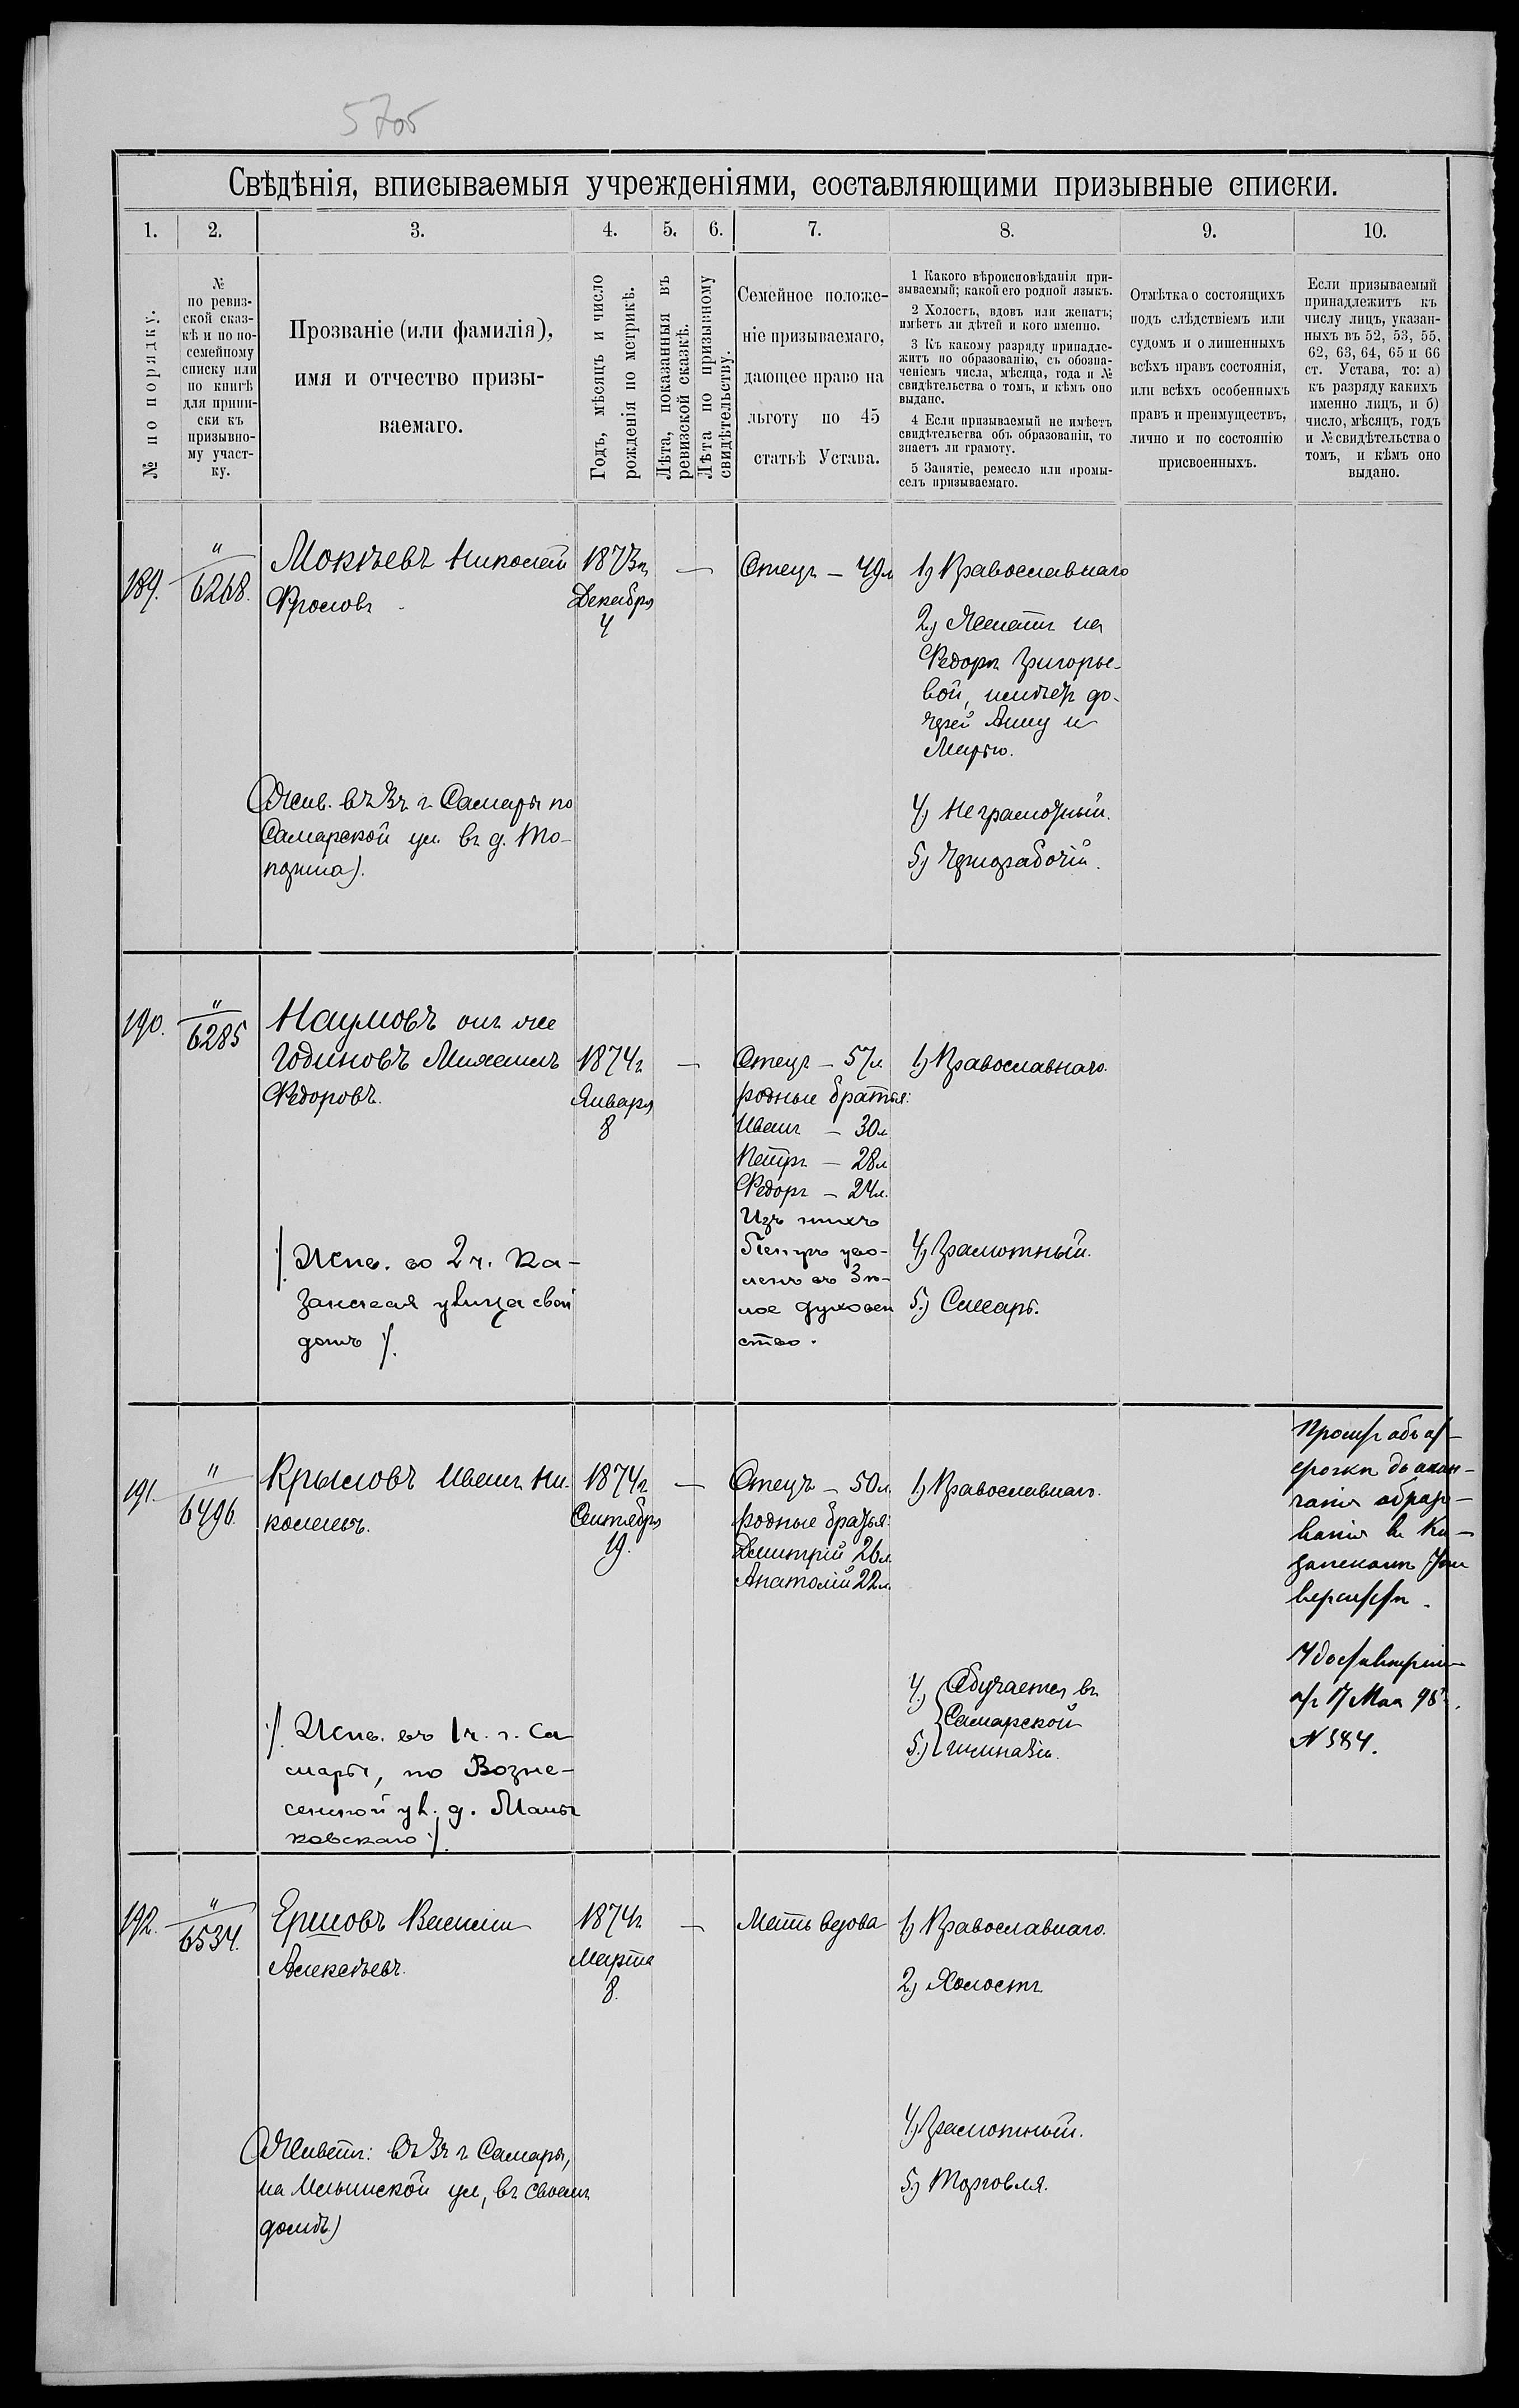 5705
Свѣдѣнія, вписываемыя учрежденіями, составляющими призывные списки.
1. 2. 3. 4. 5. 6. 7. 8. 9. 10.
№ по порядку.
№
по ревиз-
ской сказ-
кѣ и по по-
семейному
списку или
по книгѣ
для припи-
ски къ
призывно-
му участ-
ку.
Прозваніе (или фамилія),
имя и отчество призы-
ваемаго.
Годъ, мѣсяцъ и число
рожденія по метрикѣ.
Лѣта, показанныя въ
ревизской сказкѣ.
Лѣта по призывному
свидѣтельству.
Семейное положе-
ніе призываемаго,
дающее право на
льготу по 45
статьѣ Устава.
1 Какого вѣроисповѣданія при-
зываемый; какой его родной языкъ.
2 Холостъ, вдовъ или женатъ;
имѣетъ ли дѣтей и кого именно.
3 Къ какому разряду принадле-
житъ по образованію, съ обозна-
ченіемъ числа, мѣсяца, года и №
свидѣтельства о томъ, и кѣмъ оно
выдано.
4 Если призываемый не имѣетъ
свидѣтельства объ образованіи, то
знаетъ ли грамоту.
5 Занятіе, ремесло или промы-
селъ призываемаго.
Отмѣтка о состоящихъ
подъ слѣдствіемъ или
судомъ и о лишенныхъ
всѣхъ правъ состоянія,
или всѣхъ особенныхъ
правъ и преимуществъ,
лично и по состоянію
присвоенныхъ.
Если призываемый
принадлежитъ къ
числу лицъ, указан-
ныхъ въ 52, 53, 55,
62, 63, 64, 65 и 66
ст. Устава, то: а)
къ разряду какихъ
именно лицъ, и б)
число, мѣсяцъ, годъ
и № свидѣтельства о
томъ, и кѣмъ оно
выдано.
189.
"
6268.
Мокѣевъ Николай
Фроловъ
(Жив. въ 3 ч. г. Самары по
Самарской ул. въ д. То-
порнина).
1873 г.
Декабря
4
—
Отецъ – 49 л
1) Православнаго
2) Женатъ на
Ѳедорѣ Григорье-
вой, имѣетъ до-
черей Анну и
Марью.
4) Неграмотный.
5) Чернорабочій.
190.
"
6285
Наумовъ онъ же
Годиновъ Михаилъ
Ѳедоровъ.
/. Жив. во 2 ч. Ка-
занская улица свой
домъ /.
1874 г.
Января
8
—
Отецъ – 57 л.
родные братья:
Иванъ – 30 л
Петръ – 28 л
Ѳедоръ – 24 л.
Изъ нихъ
Петръ
1) Православнаго.
4) Грамотный.
5) Слесарь.
191.
"
6496.
Крыловъ Иванъ Ни-
колаевъ.
/. Жив. въ 1 ч. г. Са
мары, по Возне-
сенской ул. д. Мань
ковскаго /.
1874 г.
Сентября
19.
—
Отецъ – 50 л.
родные братья:
Дмитрій 26 л.
Анатолій 22 л.
1) Православнаго.
4) Обучается въ
Самарской
5) гимназіи.
Проситъ объ от-
срочкѣ до окон-
чанія образо-
ванія въ Ка-
занскомъ Уни
верситетѣ.
Удостовѣреніе
отъ 17 Мая 95 г.
N 584.
192.
"
6534.
Ершовъ Василій
Алексѣевъ.
(Живетъ: въ 3 ч. г. Самары,
на Ильинской ул, въ своемъ
домѣ)
1874 г.
Марта
8.
—
Мать вдова
1) Православнаго.
2) Холостъ
4) Грамотный.
5) Торговля.